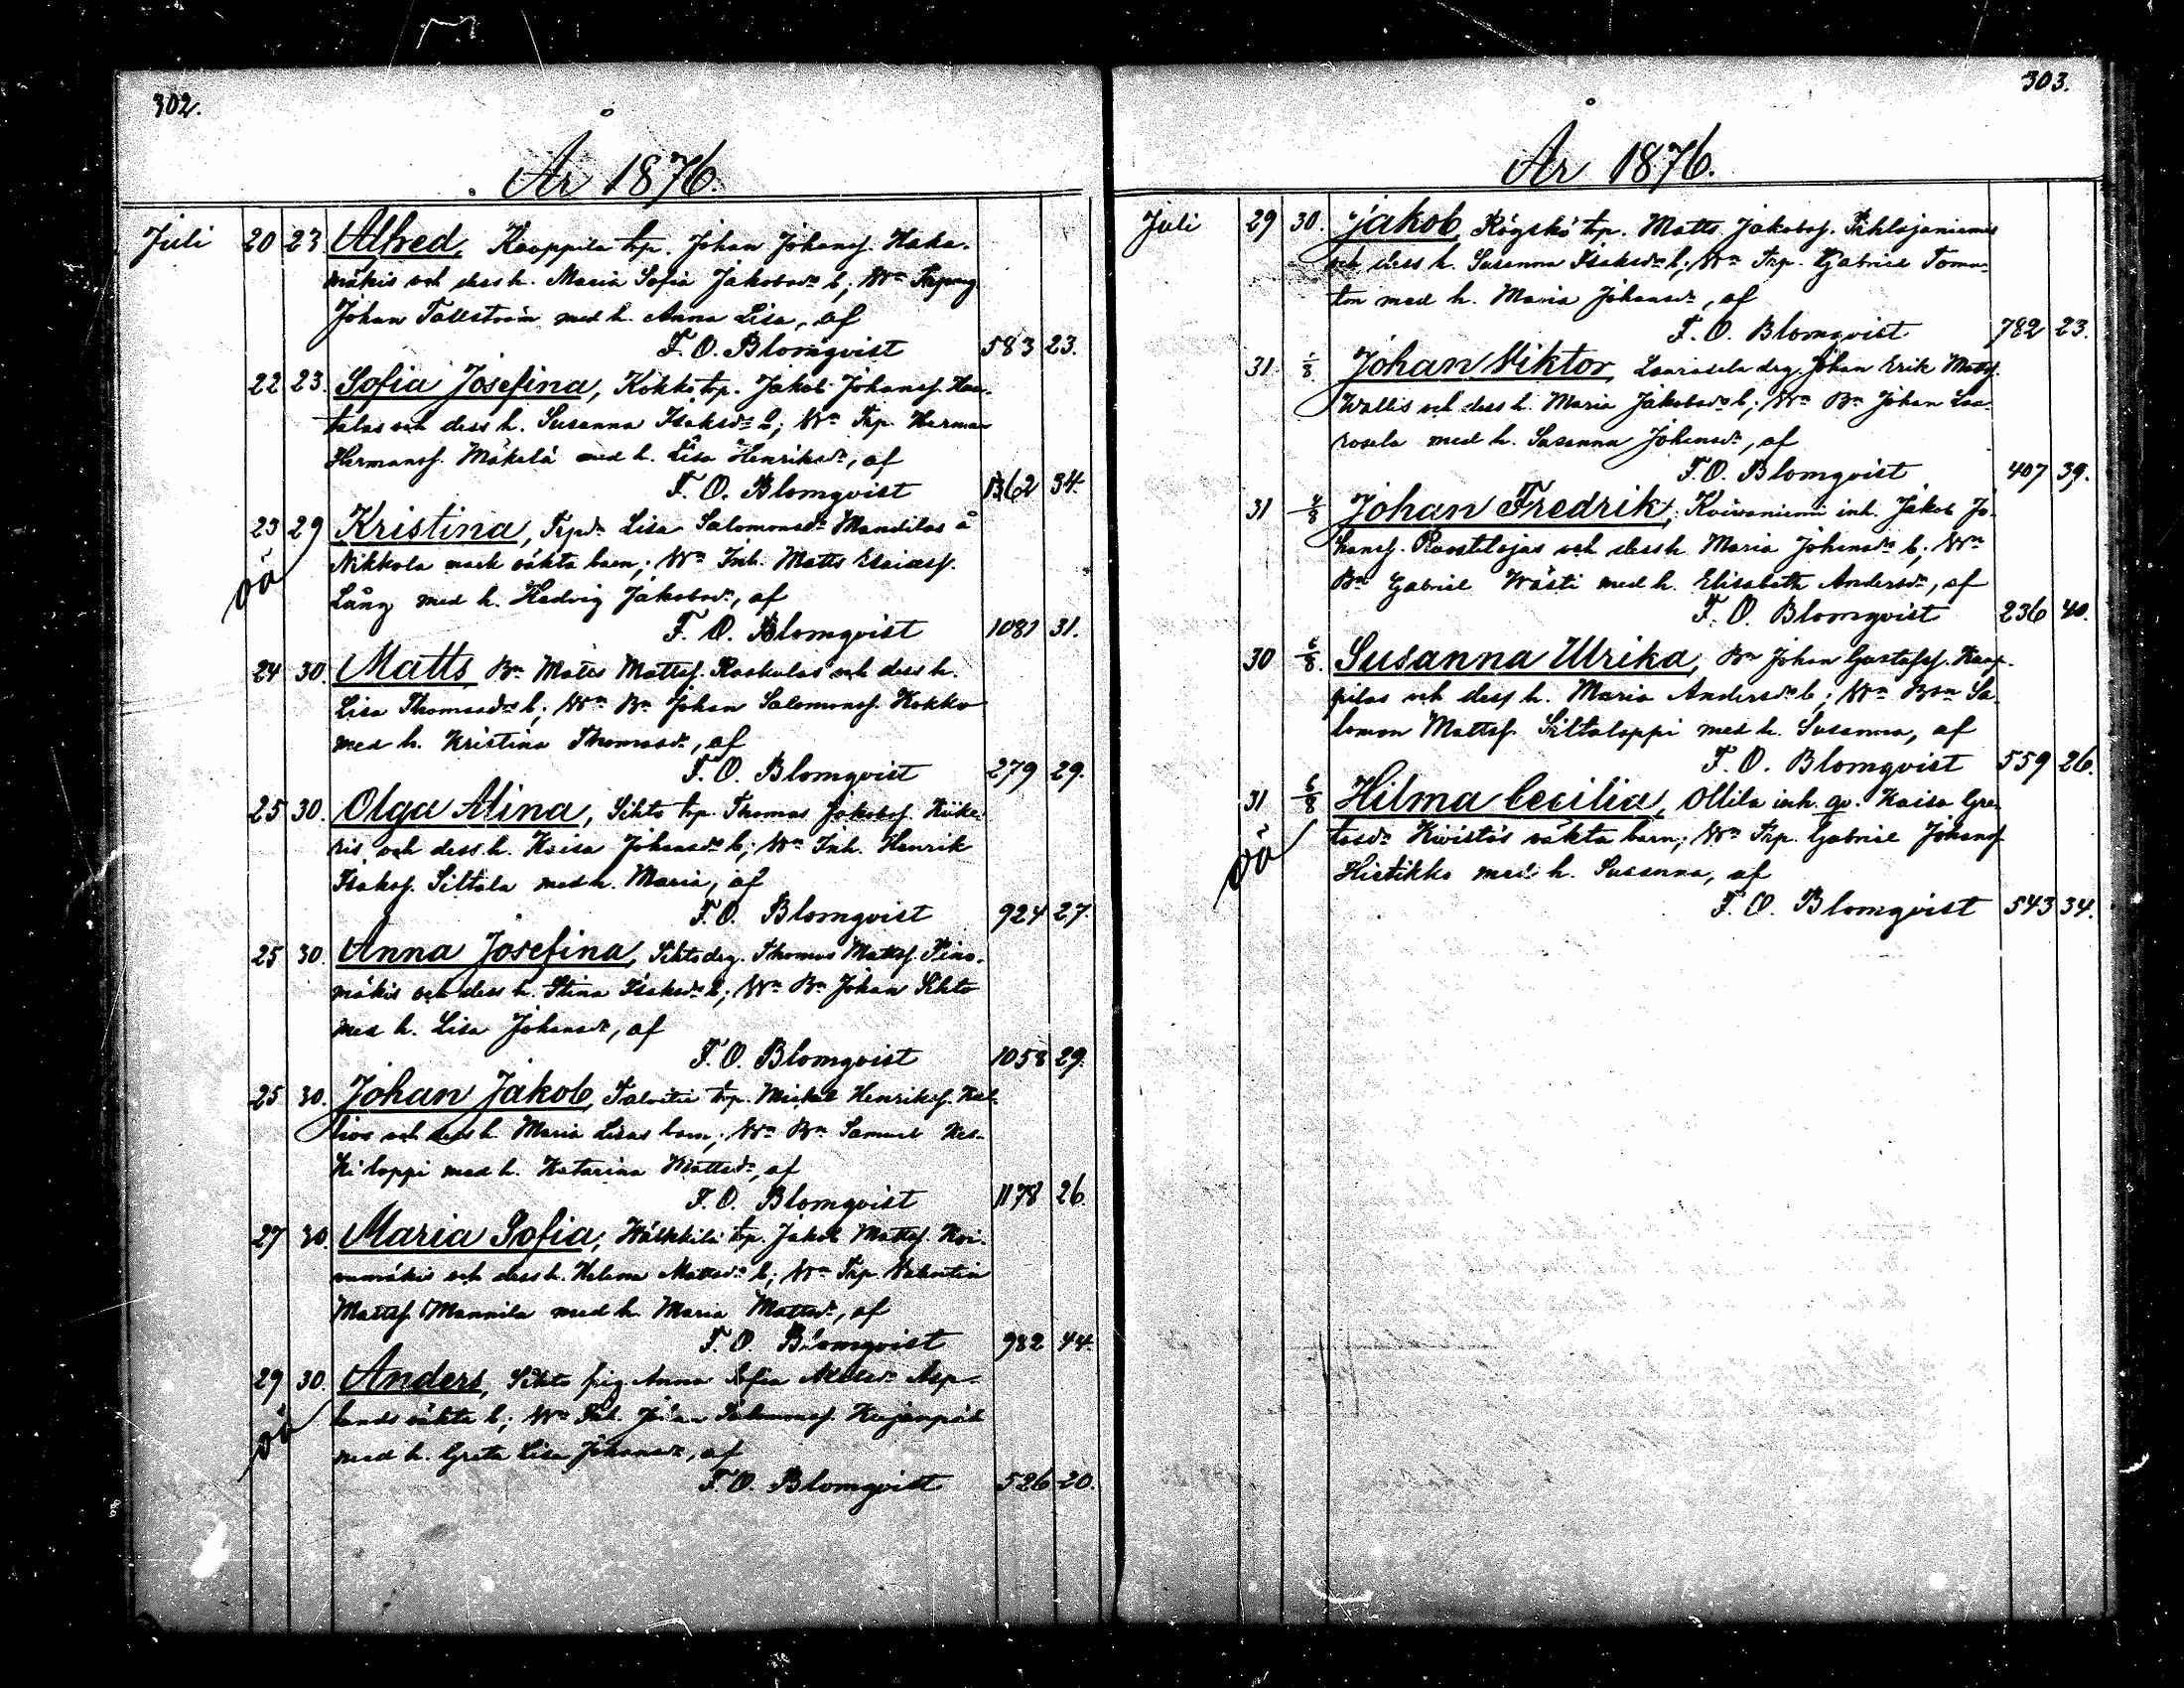 302.
År 1876.
Juli 20 23 Alfred, Kaoppila trp. Johan Johansf. Haka-
mäkis och dess h. Maria Sofia Jakobsdr b; Wn
Johan Tallström med h. Anna Lisa, af
F. O. Blomqvist 583 23.
22 23. Sofia Josefina, Kokko trp. Jakob Johansf.
och dess h. Susanna Isaksdr b; Wn Trp. Herman
Hermansf. Mäkelä med h. Lisa Henriksdr, af
F. O. Blomqvist 1362 34.
23 29 Kristina, Trpdr Lisa Salomonsdr Mandilas å
Nikkola oäkta barn; Wn Inh. Matts Esaiasf.
Lång med h. Hedvig Jakobsdr, af
oä
F. O. Blomqvist 1081 31.
24 30. Matts, Bn Matts Mattsf. Kaskulas och dess h.
Lisa Thomasdrs b; Wn Bn Johan Salomonsf. Kokko
med h. Kristina Thomasdr, af
F. O. Blomqvist 279 29.
25 30. Olga Alina, Sihto trp. Thomas Jakobsf.
och dess h. Kaisa Johansdr b; Wn Inh. Henrik
Isaksf. Siltala med h. Maria, af
F. O. Blomqvist 924 27.
25 30. Anna Josefina, Sihto drg. Thomas Mattsf.
mäkis och dess h. Stina Isaksdr b; Wn Bn Johan Sihto
med h. Lisa Johansdr, af
F. O. Blomqvist 1058 29.
25 30. Johan Jakob, Talvitie trp. Mickel Henriksf. Kal-
lios och dess h. Maria Lisas barn; Wn Bn Samuel Kes-
ki loppi med h. Katarina Mattsdr, af
F. O. Blomqvist 1178 26.
27 30. Maria Sofia, Wälkkilä trp. Jakob Mattsf. Koi-
vumäkis och dess h. Helena Mattsdr b; Wn Trp. Valentin
Mattsf. Mannila med h. Maria Mattsdr, af
F. O. Blomqvist 982 44.
29 30. Anders, Sihto pig. Anna Sofia Asp-
lunds oäkta b; Wn Inh. Johan
med h. Greta Lisa Johansdr, af
oä
F. O. Blomqvist 526 20.
303.
År 1876.
Juli 29 30. Jakob, Rögskö trp. Matts Jakobsf. Pihlajaniemis
och dess h. Susanna Isaksdr b; Wn Trp. Gabriel Toma-
ton med h. Maria Johansdr, af
F. O. Blomqvist 782 23.
31 1/8 Johan Viktor, Laurosela drg. Johan Erik Mattsf.
Wallis och dess h. Maria Jakobsdr b; Wn Bn Johan Lau-
rosela med h. Susanna Johansdr, af
F. O. Blomqvist 407 39.
31 4/8 Johan Fredrik, Koivuniemi inh. Jakob Jo-
hansf. och dess h. Maria Johansdr b; Wn
Bn Gabriel Wästi med h. Elisabeth Andersdr, af
F. O. Blomqvist 236 40.
30 6/8. Susanna Ulrika, Bn Johan Gustafsf. Kaup-
pilas och dess h. Maria Andersdr b; Wn Bon Sa-
lomon Mattsf. Siltaloppi med h. Susanna, af
F. O. Blomqvist 559 26.
31 6/8 Hilma Cecilia, Ollila inh. qv. Kaisa Gre-
tasdr Kivistös oäkta barn; Wn Trp. Gabriel Johansf.
Hietikko med h. Susanna, af
oä
F. O. Blomqvist 543 34.